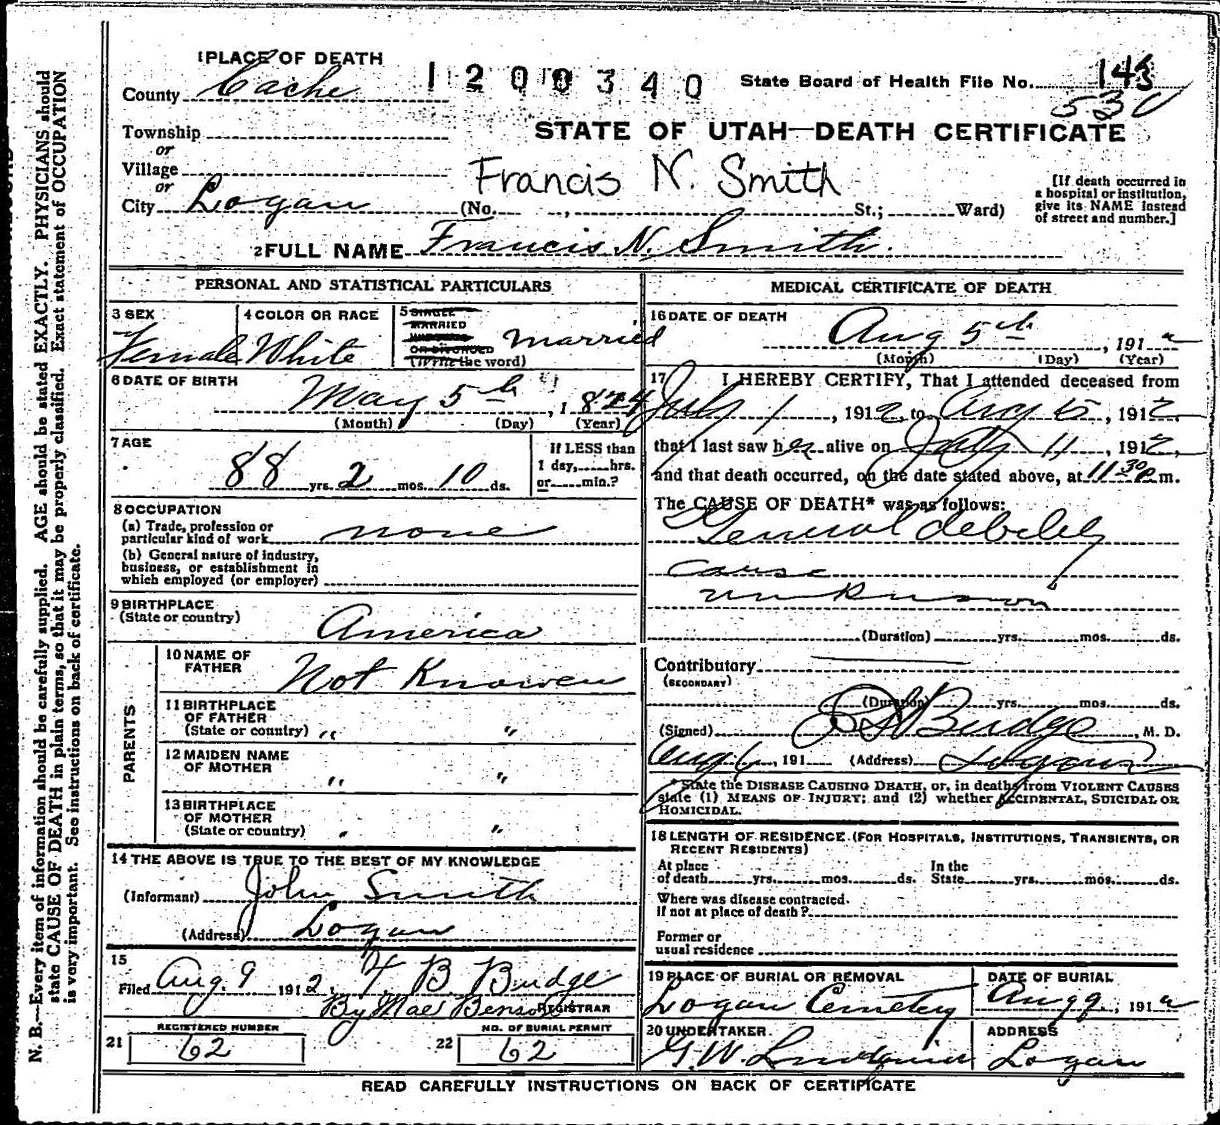 1 PLACE OF DEATH
County Cache
1200340
State Board of Health File No. 143
530
Township
or
Village
or
City Logan
STATE OF UTAH—DEATH CERTIFICATE
Francis N. Smith
(No. , St.; Ward)
[If death occurred in a hospital or institution, give its NAME instead of street and number.]
2 FULL NAME Francis N. Smith.
PERSONAL AND STATISTICAL PARTICULARS
3 SEX
Female
4 COLOR OR RACE
White
5 SINGLE
MARRIED
WIDOWED
OR DIVORCED
(Write the word)
married
6 DATE OF BIRTH
May 5th, 1824
(Month) (Day) (Year)
7 AGE
88 yrs. 2 mos. 10 ds.
If LESS than
1 day, hrs.
or min.?
8 OCCUPATION
(a) Trade, profession or
particular kind of work none
(b) General nature of industry,
business, or establishment in
which employed (or employer)
9 BIRTHPLACE
(State or country) America
PARENTS
10 NAME OF
FATHER Not Knowen
11 BIRTHPLACE
OF FATHER
(State or country) " "
12 MAIDEN NAME
OF MOTHER " "
13 BIRTHPLACE
OF MOTHER
(State or country) " "
14 THE ABOVE IS TRUE TO THE BEST OF MY KNOWLEDGE
(Informant) John Smith
(Address) Logan
15
Filed Aug. 9 1912, F. B. Budge
By Mae Benson REGISTRAR
REGISTERED NUMBER
21 62
NO. OF BURIAL PERMIT
22 62
MEDICAL CERTIFICATE OF DEATH
16 DATE OF DEATH
Aug 5th, 1912
(Month) (Day) (Year)
17 I HEREBY CERTIFY, That I attended deceased from
July 1, 1912, to Aug 5, 1912,
that I last saw her alive on July 11, 1912,
and that death occurred, on the date stated above, at 11 30 P m.
The CAUSE OF DEATH* was as follows:
General debility
cause
unknown
(Duration) yrs. mos. ds.
Contributory
(SECONDARY)
(Duration) yrs. mos. ds.
(Signed) Budge, M. D.
Aug 6, 191 (Address) Logan
*State the DISEASE CAUSING DEATH, or, in deaths from VIOLENT CAUSES
state (1) MEANS OF INJURY; and (2) whether ACCIDENTAL, SUICIDAL OR
HOMICIDAL.
18 LENGTH OF RESIDENCE (FOR HOSPITALS, INSTITUTIONS, TRANSIENTS, OR
RECENT RESIDENTS)
At place
of death yrs. mos. ds.
In the
State yrs. mos. ds.
Where was disease contracted.
if not at place of death?
Former or
usual residence
19 PLACE OF BURIAL OR REMOVAL
Logan Cemetery
DATE OF BURIAL
Aug 9, 1912
20 UNDERTAKER
G. W. Lindquist
ADDRESS
Logan
READ CAREFULLY INSTRUCTIONS ON BACK OF CERTIFICATE
N. B.—Every item of information should be carefully supplied. AGE should be stated EXACTLY. PHYSICIANS should
state CAUSE OF DEATH in plain terms, so that it may be properly classified. Exact statement of OCCUPATION
is very important. See instructions on back of certificate.